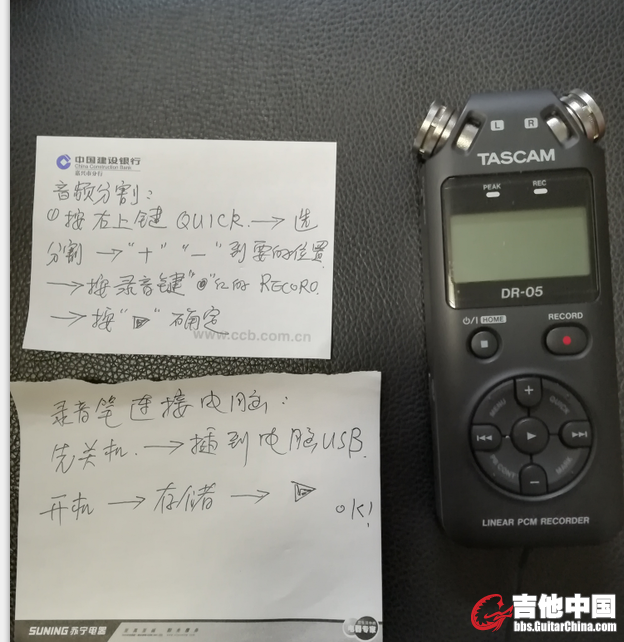 中国建设银行
China Construction Bank
音频分割:
①按右上键 QUICK. → 选
分割 → "+" "—" 到要的位置
→ 按录音键"◉"红的 RECORD.
→ 按"▷" 确定
www.ccb.com.cn
录音笔连接电脑:
先关机. → 插到电脑USB.
开机 → 存储 → ▷ OK!
SUNING 苏宁电器
L R
TASCAM
PEAK REC
DR-05
⏻/I HOME RECORD
+
MENU QUICK
PB CONT MARK
—
LINEAR PCM RECORDER
吉他中国
bbs.GuitarChina.com